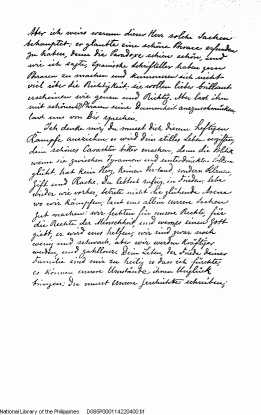 Aber ich weiss warum dieser Herr solche Sachen
behauptet; er glaubte eine schöne Phrase erfunden
zu haben, denn die Paradoxe schien schön, und
wie ich sagte, spanische Schriftsteller haben gern
Phrasen zu machen und kümmern sich nicht
viel über die Richtigkeit; sie wollen lieber brillant
erscheinen wie genau und Richtig. Aber lass ihn
mit schönen Phrasen seine Dummheit auszuschmücken
lass uns von Dir sprechen.
Ich denke nur, Du musst Dich diesem heftigen
Kampfe ausweichen; es wird Dein stilles Leben vergiften,
Dein schönes Caracter bitter machen, denn die Politik
wenn sie zwischen Tyrannen und unterdrückten Völkern
glüht, hat kein Herz, keinen Verstand, sondern Klauen,
Gift und Rache. Du lebtest ruhig, in Frieden, lebe
wieder wie vorher, betrete nicht die glühende Arena
wo wir kämpfen; lass uns allein unsere Sachen
gut machen; wir fechten für unsere Rechte, für
die Rechte der Menschheit, und wenn es einen Gott
giebt, er wird uns helfen; wir sind zwar noch
wenig und schwach, aber wir werden kräftiger
werden und zahlloser. Dein Leben, der Friede deiner
Familie sind mir zu heilig, so dass ich fürchte,
es könnten unsere Umstände ihnen Unglück
bringen. Du musst unsere Geschichte schreiben;
National Library of the Philippines D085R000114220400.tif